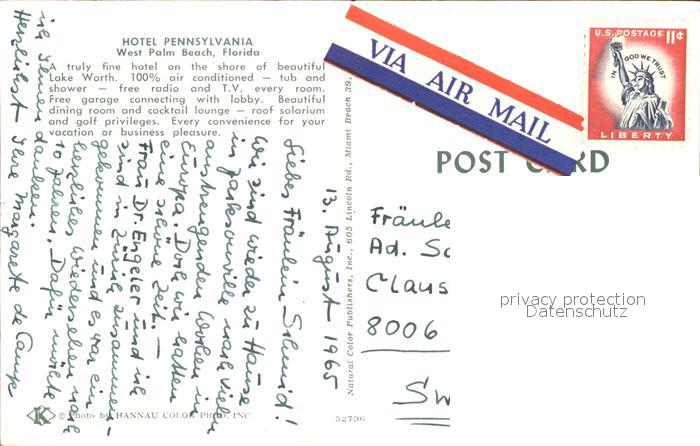 HOTEL PENNSYLVANIA
West Palm Beach, Florida
A truly fine hotel on the shore of beautiful
Lake Worth. 100% air conditioned — tub and
shower — free radio and T.V. every room.
Free garage connecting with lobby. Beautiful
dining room and cocktail lounge — roof solarium
and golf privileges. Every convenience for your
vacation or business pleasure.
13. August 1965
Liebes Fräulein Schmid!
Wir sind wieder zu Hause
in Jacksonville nach vielen
anstrengenden Wochen in
Europa. Doch wir hatten
eine schöne Zeit. —
Frau Dr. Engeler und ich
sind in Zürich zusammen-
gekommen und es war ein
herzliches Wiedersehen nach
10 Jahren. Dafür möchte
ich Ihnen danken.
Herzlichst Ihre Margarete de Camp
© Photo by HANNAU COLOR PROD. INC.
52736
Natural Color Publishers, Inc., 605 Lincoln Rd., Miami Beach 39,
VIA AIR MAIL
U.S. POSTAGE 11¢
IN GOD WE TRUST
LIBERTY
POST CARD
Fräule
Ad. Sc
Claus
8006
Sw
privacy protection
Datenschutz